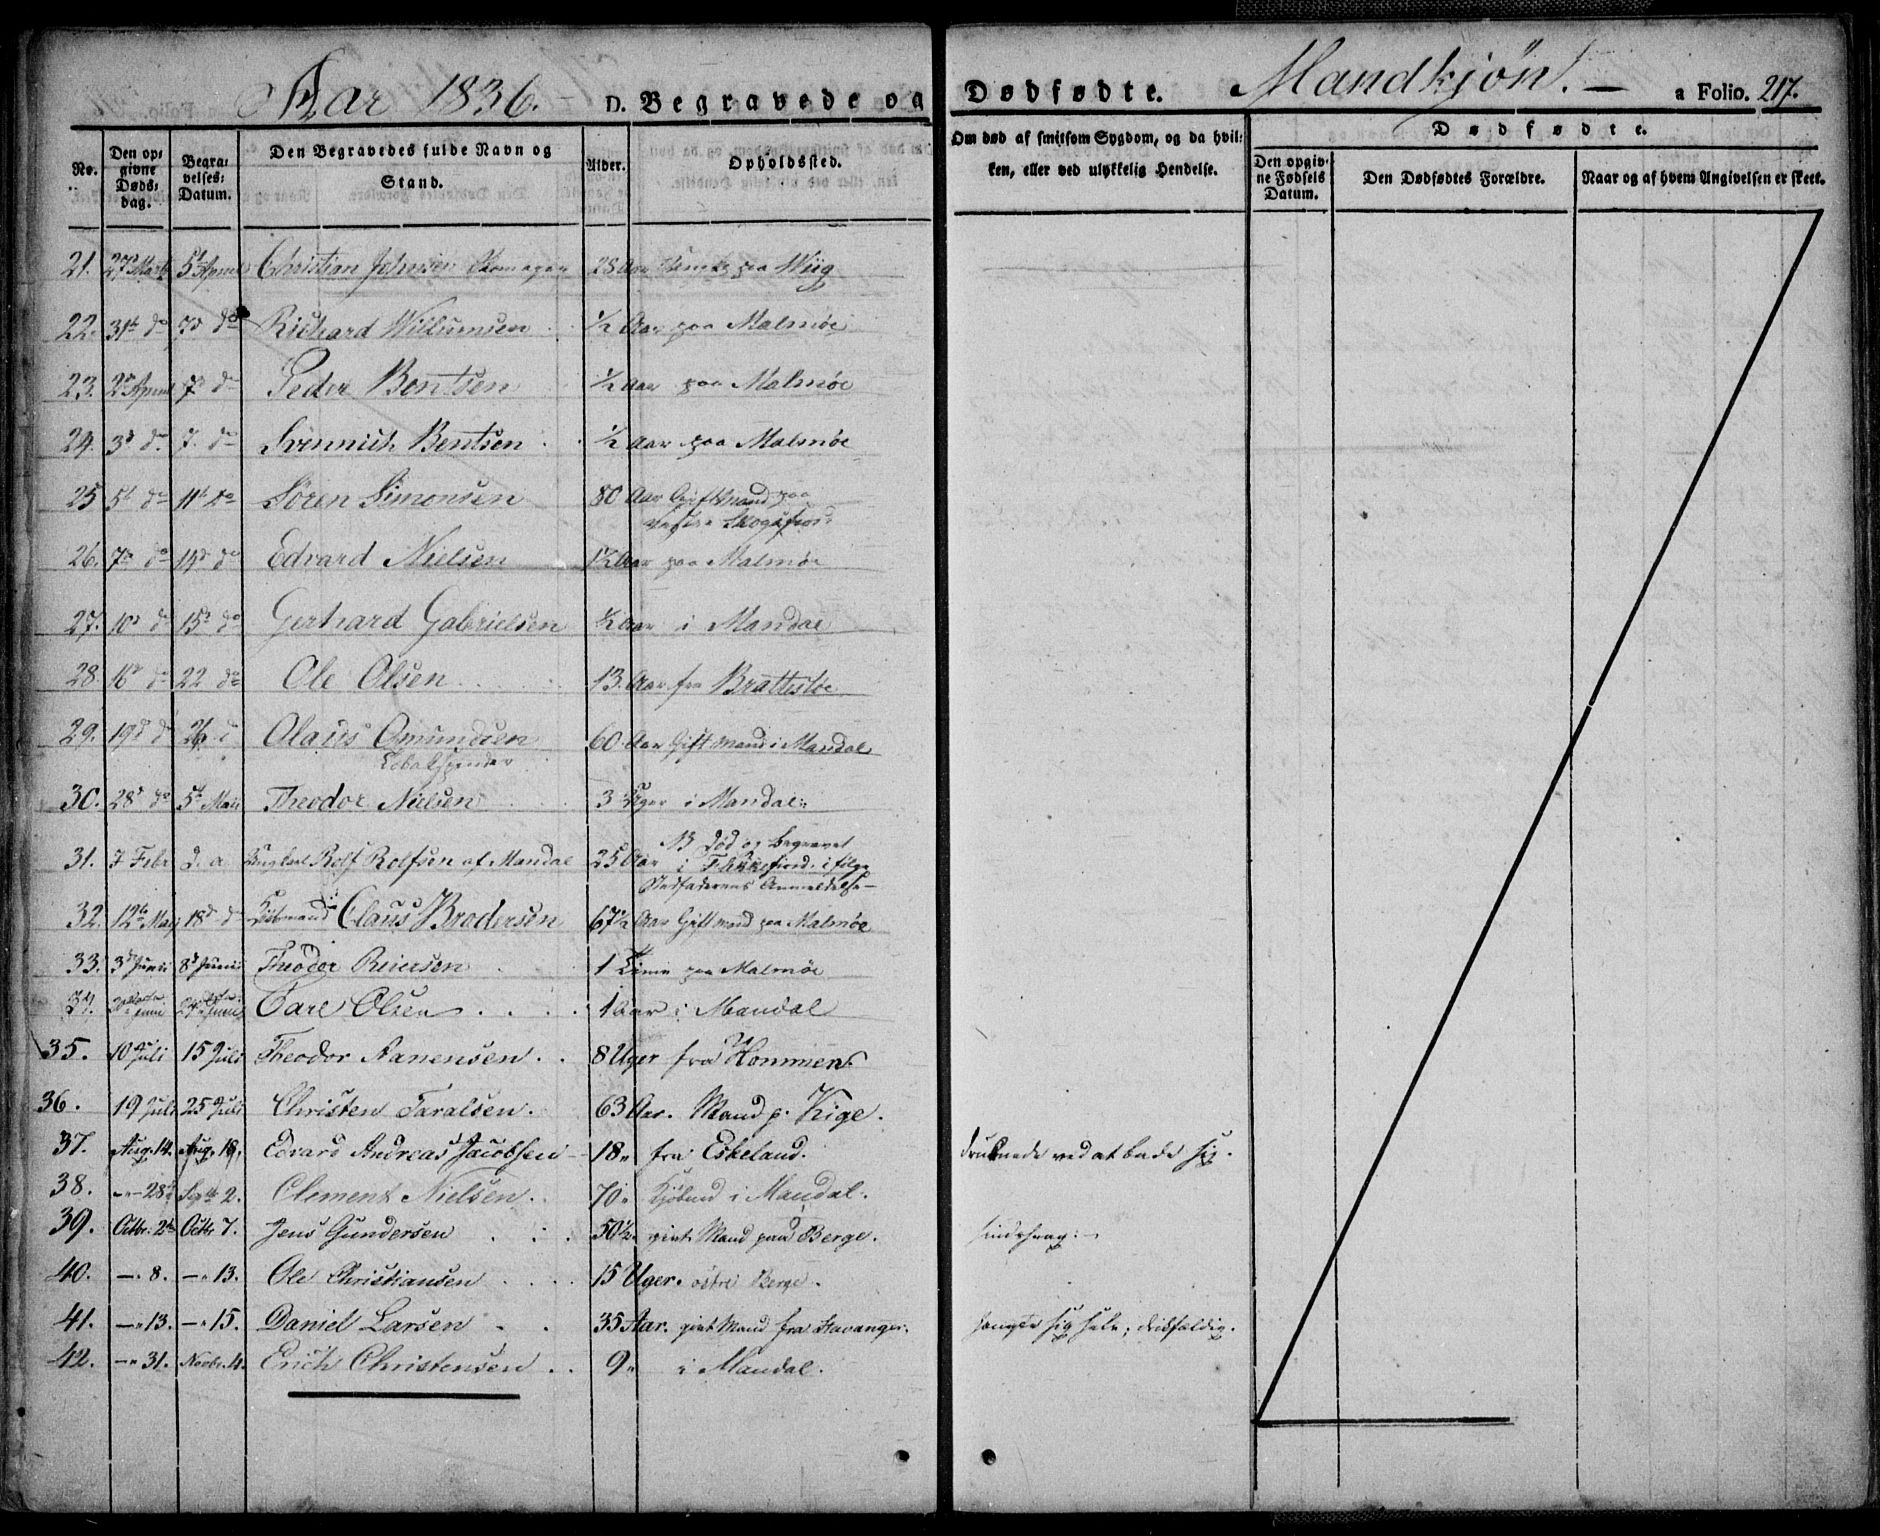 Aar 1836. D. Begravede og Dødfødte. Mandkjøn. a Folio. 217.
No. Den opgivne Dødsdag. Begravelses Datum. Den Begravedes fulde Navn og Stand. Alder. Opholdssted. Om død af smitsom Sygdom, og da hvilken, eller ved ulykkelig Hendelse. Dødfødte. Den opgivne Fødsels Datum. Den Dødfødtes Forældre. Naar og af hvem Angivelsen er skeet.
21. 27 Marts 5t April Christian Johnsen 28 Aar paa Wiig
22. 31t do 7d do Richard Willumsen ½ Aar paa Malmøe
23. 2d April 7d do Peder Bentsen ½ Aar paa Malmøe
24. 3d do. 7. do Svennich Bentsen ½ Aar paa Malmøe
25 5t do 11t do Søren Simonsen 80 Aar Gift Mand paa
26. 7de do 14d do Edvard Nielsen 1½ Aar paa Malmøe
27. 10d do 15d do Gerhard Gabrielsen Aar i Mandal
28. 16d do 22 do Ole Olsen 13. Aar fra Brattestøe
29. 19d do 26 d Olaus Omundsen 60 Aar Gift Mand i Mandal
30. 28d do 5t Mai Theodor Nielsen 3 Uger i Mandal
31. 7 Febr d. a Ungkarl Rolf Rolfsen af Mandal 25 Aar død og Begravet
i Flekkefiord i følge
Stedfaderens Anmeldelse
32. 12te Maj 18d do Claus Brodersen 67½ Aar Gift Mand paa Malmøe
33. 3d Juni 8d Juni Theodor Reiersen 1 Time paa Malmøe
34. Juni Juni Carl Olsen 1 Aar i Mandal
35. 10 Juli 15 Juli Theodor Aanensen 8 Uger fra Hommen
36. 19 Juli 25 Juli Christen Taralsen. 63 Aar. Mand p. Kige.
37. Aug. 14. Aug. 19. Edvard Andreas Jacobsen 18" fra Eskeland. druknede ved at bade sig.
38. –"–28d Septb 2. Clement Nielsen. 70" i Mandal.
39. Octbr. 2d Octbr 7. Jens Gundersen 50½. givt Mand paa Berge.
40. –" 8. –" 13. Ole Christiansen 15 Uger. østre Berge.
41. –" 13. –" 15. Daniel Larsen 35 Aar. givt Mand fra Stavanger. hængte sig selv;
42. –" 31. Novbr. 4. Erich Christensen 9" i Mandal.